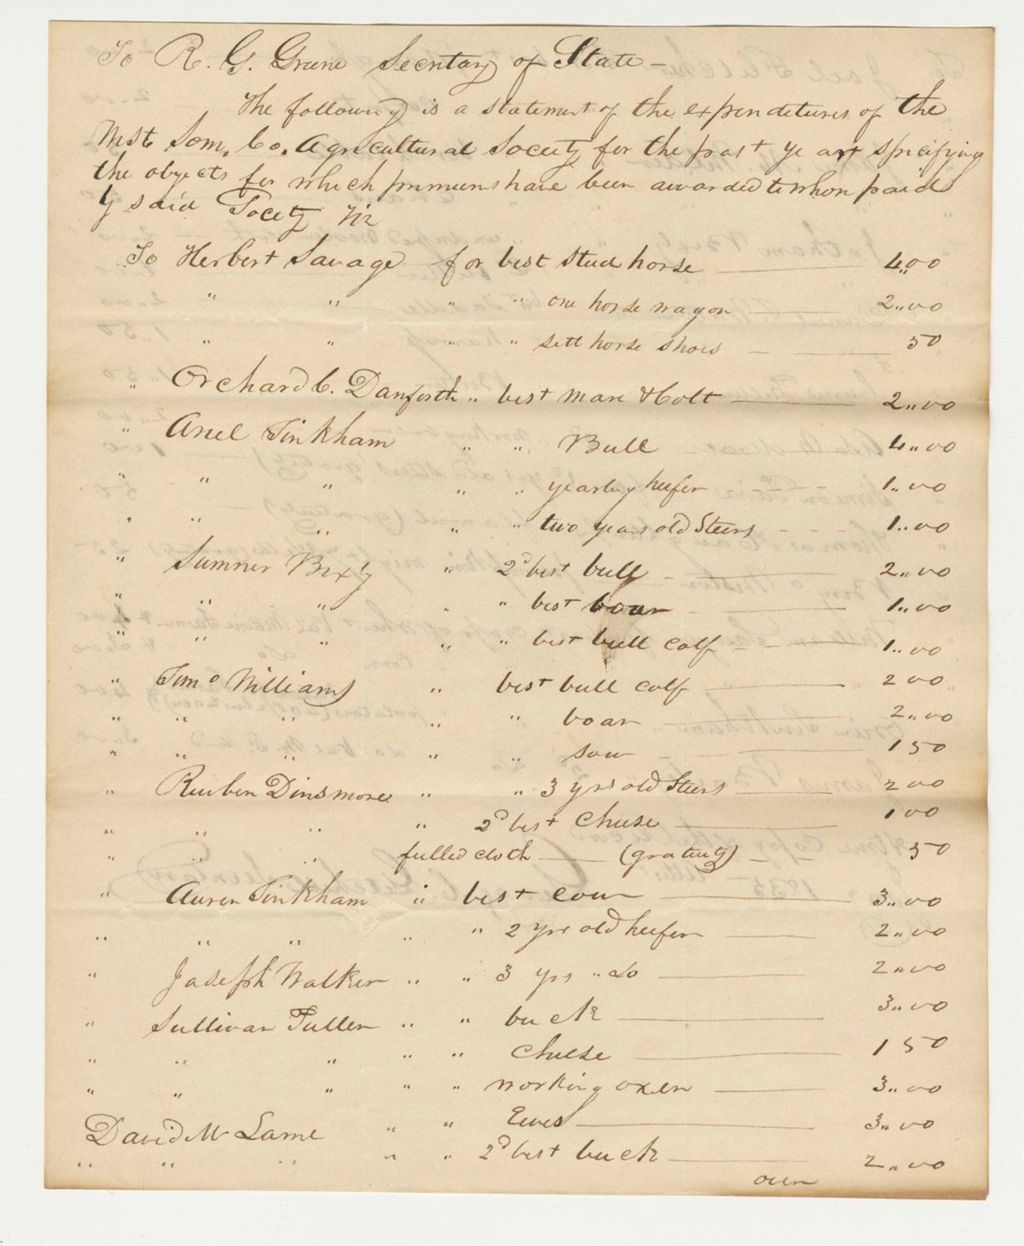 To R. G. Greene Secretary of State -
The following is a statement of the expenditures of the
West Som. Co. Agricultural Society for the past year specifying
the objects for which premiums have been awarded & to whom paid
by said Society Viz
To Herbert Savage for best stud horse 4,,00
" " " " one horse wagon 2,,00
" " " " sett horse shoes 50
" Orchard C. Danforth " best mare & Colt 2,,00
" Ariel Tinkham " " Bull 4,,00
" " " " " yearling heifer 1,,00
" " " " " two years old Steers 1,,00
" Sumner Bixby " 2d best bull 2,,00
" " " " " best boar 1,,00
" " " " " best bull calf 1,,00
" Timo Williams " best bull calf 2 00
" " " " " boar 2,,00
" " " " " sow 1 50
" Reuben Dinsmore " " 3 yrs old Steers 2 00
" " " " 2d best Cheese 1 00
" " " fulled cloth (gratuity) 50
" Auren Tinkham " best cow 3,,00
" " " " " 2 yrs old heifer 2,,00
" Joseph Walker " " 3 yrs " do 2,,00
" Sullivan Fuller " " buck 3,,00
" " " " " Cheese 1 50
" " " " " working oxen 3,,00
David M Lame " " Ewes 3,,00
" " " " " 2d best buck 2,,00
over